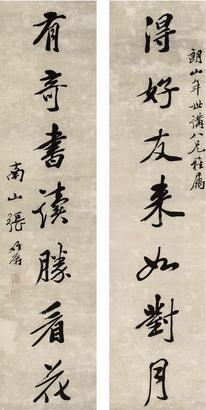 得好友来如對月
朗山年世講八兄雅屬
有奇書讀勝看花
南山張